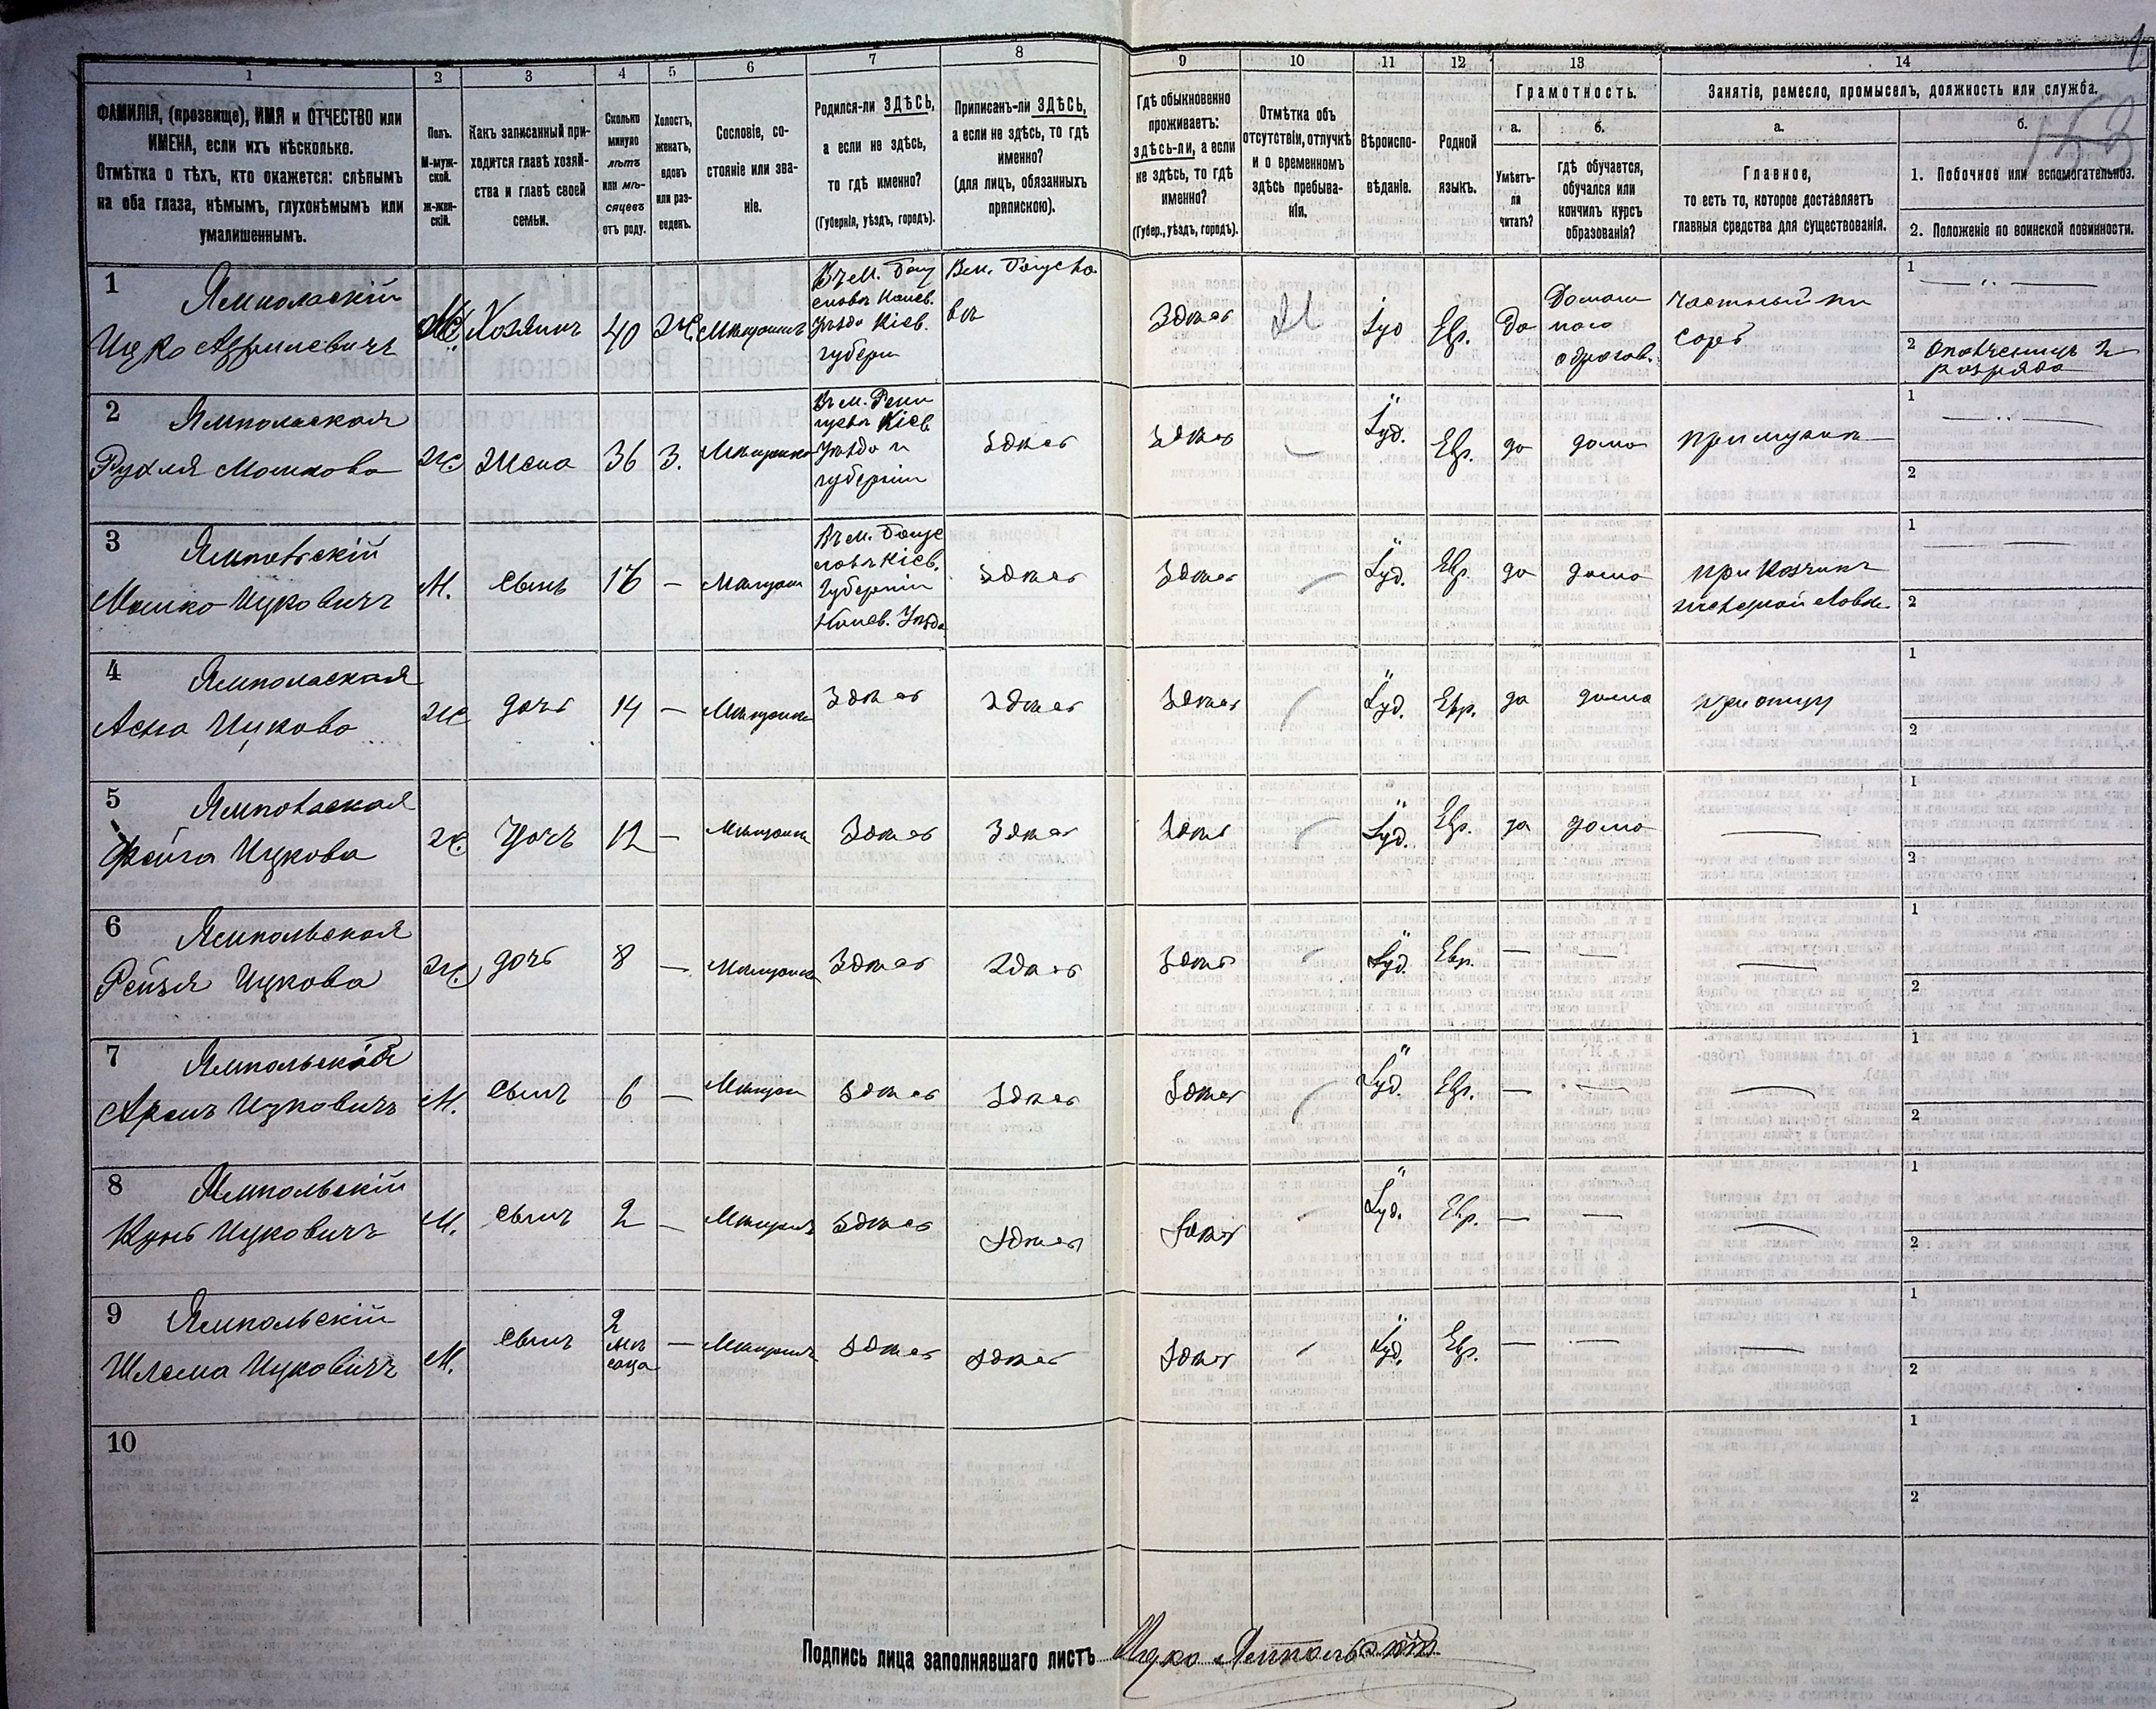 1 2 3 4 5 6 7 8 9 10 11 12 13 14
ФАМИЛІЯ, (прозвище), ИМЯ и ОТЧЕСТВО или
ИМЕНА, если ихъ нѣсколько.
Отмѣтка о тѣхъ, кто окажется: слѣпымъ
на оба глаза, нѣмымъ, глухонѣмымъ или
умалишеннымъ.
Полъ.
М-муж-
ской.
Ж-жен-
скій.
Какъ записанный при-
ходится главѣ хозяй-
ства и главѣ своей
семьи.
Сколько
минуло
лѣтъ
или мѣ-
сяцевъ
отъ роду.
Холостъ,
женатъ,
вдовъ
или раз-
веденъ.
Сословіе, со-
стояніе или зва-
ніе.
Родился-ли ЗДѢСЬ,
а если не здѣсь,
то гдѣ именно?
(Губернія, уѣздъ, городъ).
Приписанъ-ли ЗДѢСЬ,
а если не здѣсь, то гдѣ
именно?
(для лицъ, обязанныхъ
припискою).
Гдѣ обыкновенно
проживаетъ:
здѣсь-ли, а если
не здѣсь, то гдѣ
именно?
(Губер., уѣздъ, городъ).
Отмѣтка объ
отсутствіи, отлучкѣ
и о временномъ
здѣсь пребыва-
ніи.
Вѣроиспо-
вѣданіе.
Родной
языкъ.
Грамотность.
а.
Умѣетъ-
ли
читать?
б.
гдѣ обучается,
обучался или
кончилъ курсъ
образованія?
Занятіе, ремесло, промыселъ, должность или служба.
а.
Главное,
то есть то, которое доставляетъ
главныя средства для существованія.
б.
1. Побочное или вспомогательное.
2. Положеніе по воинской повинности.
1
Ямпольскій
Ицко
Хозяинъ
40
Ж.
Мѣщанинъ
Въ м. Богу
славъ Канев.
Уѣзда Кіев.
губерн
В м. Богусла
въ
Здѣсь
Іуд
Евр.
Да
Домаш
няго
Частный пи
сарь
1
2 ополченецъ 2
разряда
2
Ямпольская
Рухля Мошкова
Ж.
Жена
36
З.
Мѣщанка
Кіев.
Уѣзда и
губерніи
Здѣсь
Здѣсь
Іуд.
Евр.
да
дома
при мужѣ
1
2
3
Ямпольскій
Мошко Ицковичъ
М.
Сынъ
16
—
Мѣщан
Въ м. Богус
лавъ Кіев.
Губерніи
Канев. Уѣзда
Здѣсь
Здѣсь
Іуд.
Евр.
да
дома
приказчикъ
1
2
4
Ямпольская
Ицкова
Ж
дочь
14
—
Мѣщанка
Здѣсь
Здѣсь
Здѣсь
Іуд.
Евр.
да
дома
при отцу
1
2
5
Ямпольская
Фейга Ицкова
Ж.
дочь
12
—
Мѣщанка
Здѣсь
Здѣсь
Здѣсь
Іуд.
Евр.
да
дома
—
1
2
6
Ямпольская
Рейзя Ицкова
Ж.
дочь
8
—
Мѣщанка
Здѣсь
Здѣсь
Здѣсь
Іуд.
Евр.
—
—
—
1
2
7
Ямпольскій
Аронъ Ицковичъ
М.
Сынъ
6
—
Мѣщан
Здѣсь
Здѣсь
Здѣсь
Іуд.
Евр.
—
—
—
1
2
8
Ямпольскій
Ицковичъ
М.
Сынъ
2
—
Мѣщанинъ
Здѣсь
Здѣсь
Здѣсь
Іуд.
Евр.
—
—
—
1
2
9
Ямпольскій
Шлема Ицковичъ
М.
Сынъ
2
мѣ
сяца
—
Мѣщанинъ
Здѣсь
Здѣсь
Здѣсь
Іуд.
Евр.
—
—
—
1
2
10
1
2
Подпись лица заполнявшаго листъ Ицко Ямпольскій